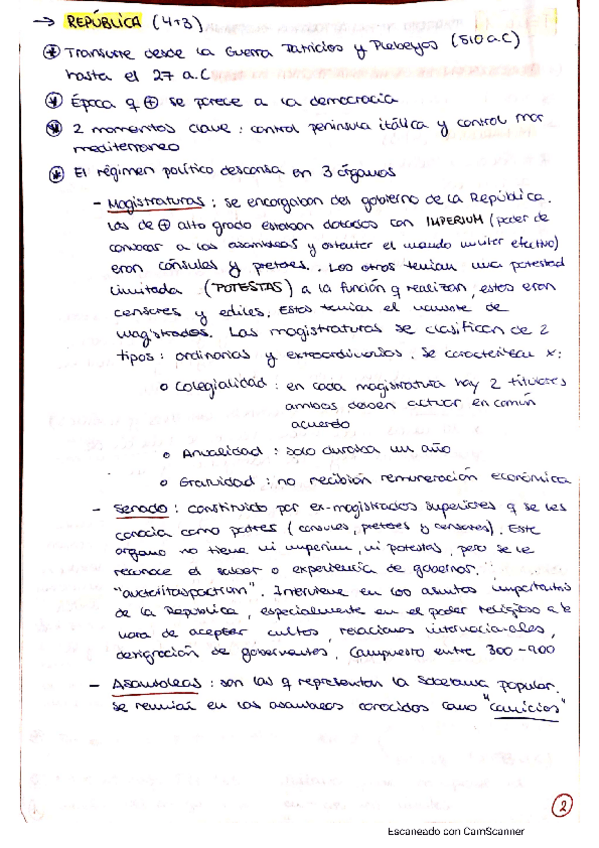 → REPÚBLICA (4+3)
⊛ Transcurre desde la Guerra Patricios y Plebeyos (510 a.C)
hasta el 27 a.C
⊛ Época q ⊕ se parece a la democracia
⊛ 2 momentos clave : control península itálica y control mar
mediterraneo
⊛ El régimen político descansa en 3 órganos
- Magistraturas : se encargaban del gobierno de la República.
Las de ⊕ alto grado estaban dotados con IMPERIUM (poder de
convocar a las asambleas y ostentar el mando militar efectivo)
eran cónsules y pretores. Los otros tenían una potestad
limitada (POTESTAS) a la función q realizan, estos eran
censores y ediles. Estos tenían el nombre de
magistrados. Las magistraturas se clasifican de 2
tipos : ordinarias y extraordinarias. Se caracterizan x:
o Colegialidad : en cada magistratura hay 2 titulares
ambos deben actuar en común
acuerdo
o Anualidad : solo duraba un año
o Gratuidad : no recibían remuneración económica
- Senado : constituido por ex-magistrados superiores q se les
conocía como patres (consules, pretores y censores). Este
organo no tiene ni imperium, ni potestas, pero se le
reconoce el saber o experiencia de gobernar.
"auctoritaspatrum". Interviene en los asuntos importantes
de la República, especialmente en el poder religioso a la
hora de aceptar cultos, relaciones internacionales,
designación de gobernantes. Compuesto entre 300-900
- Asambleas : son las q representan la soberanía popular.
Se reunían en las asambleas conocidas como "comicios"
2
Escaneado con CamScanner